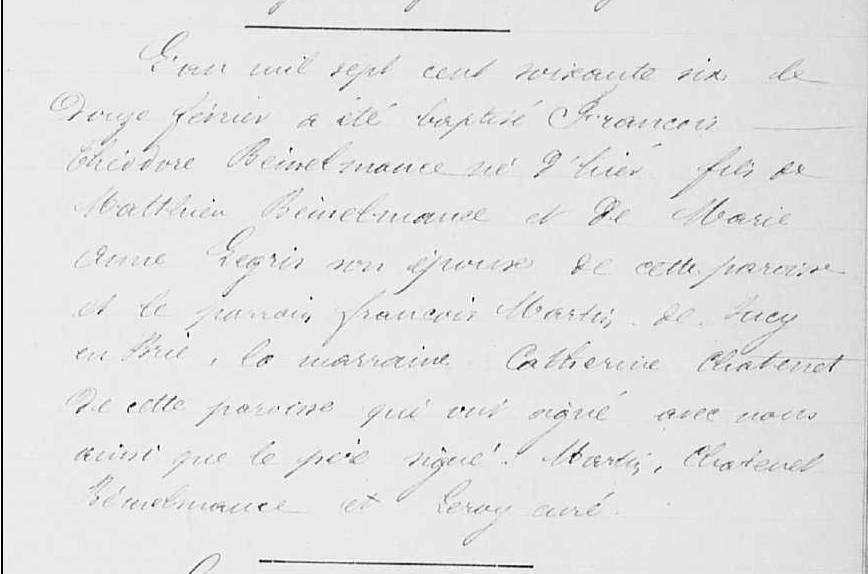 L'an mil sept cent soixante six le
Douze février a été baptisé François
théodore Beinelmance né d'hier fils de
Matthieu Beinelmance et de Marie
Anne Legris son épouse de cette paroisse
et le parrain françois Martin de Sucy
en Brie, la marraine Catherine Chatenet
de cette paroisse qui ont signé avec nous
ainsi que le père signé. Martin, Chatenet
Beinelmance et Leroy curé.